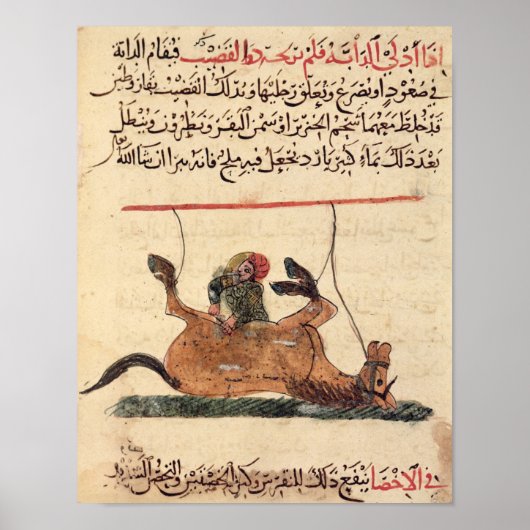 اذا أدلى الدابة فلم يرجع القضيب فيقام الدابة
في صعود او يصرع وتعلق رجليها ويدلك القضيب
قد خلط معهما شحم الخنزير او سمن البقر ونطرون وينطل
بعد ذلك بماء كثير بارد يجعل فيه ملح فانه يبرا ان شا الله
في الاخصا ينفع ذلك للنقرس وكبر الخصيتين